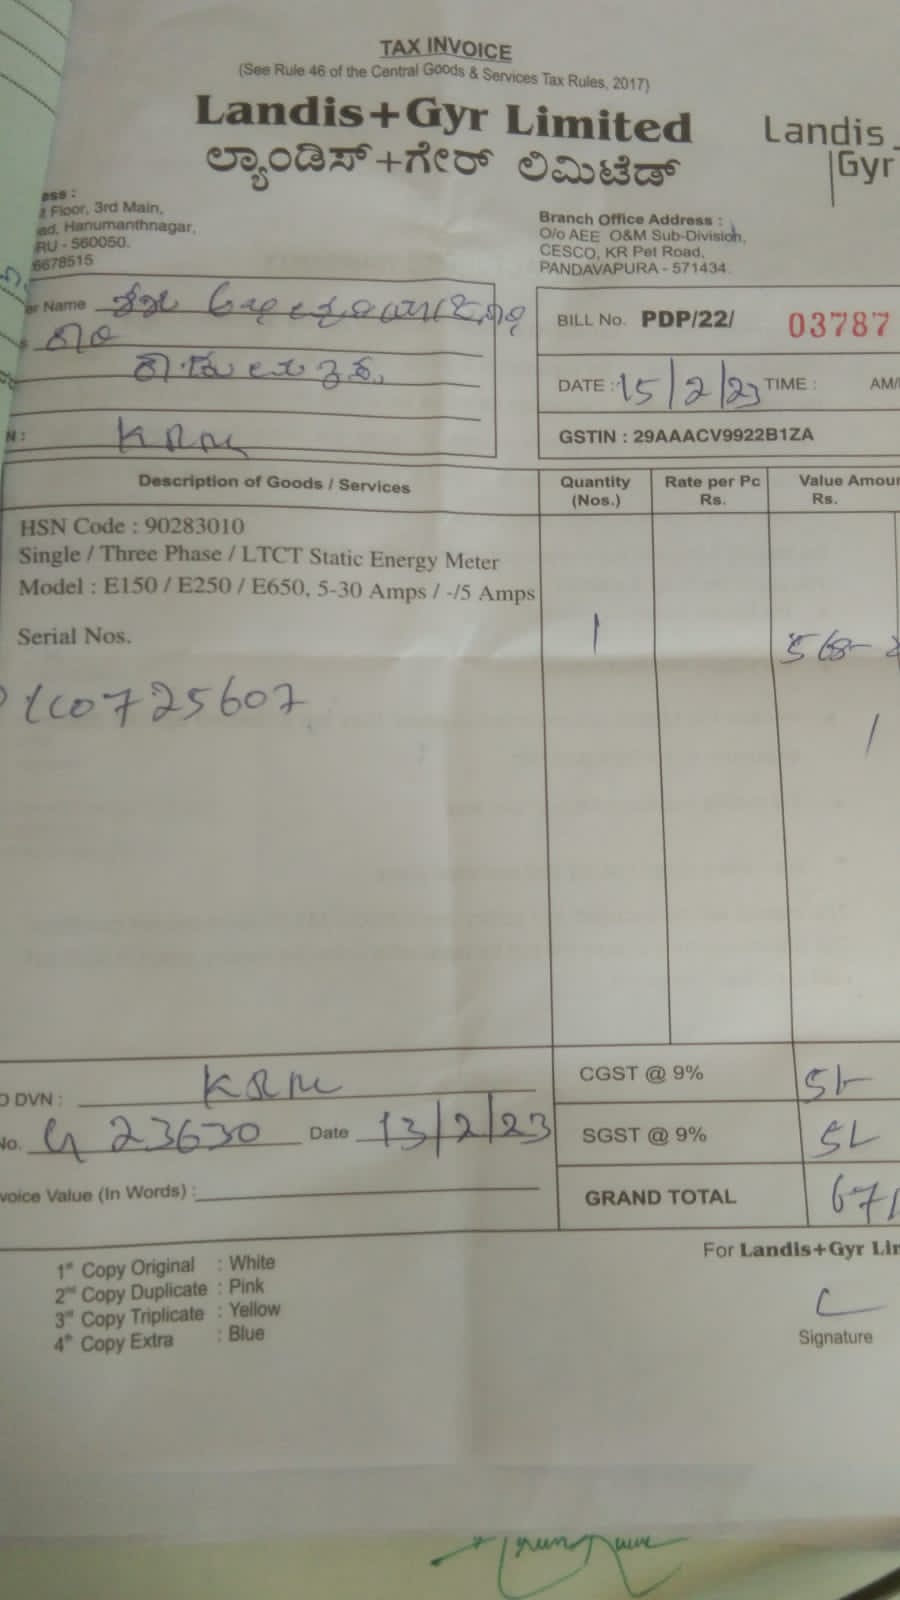 TAX INVOICE
(See Rule 46 of the Central Goods & Services Tax Rules, 2017)
Landis+Gyr Limited
ಲ್ಯಾಂಡಿಸ್+ಗೇರ್ ಲಿಮಿಟೆಡ್
Landis
Gyr
ess :
t Floor, 3rd Main,
ad, Hanumanthnagar,
RU - 560050.
6678515
Branch Office Address :
O/o AEE O&M Sub-Division,
CESCO, KR Pet Road,
PANDAVAPURA - 571434.
er Name
BILL No. PDP/22/ 03787
DATE : 15/2/23 TIME : AM/
N : KRM
GSTIN : 29AAACV9922B1ZA
Description of Goods / Services
Quantity (Nos.)
Rate per Pc Rs.
Value Amou Rs.
HSN Code : 90283010
Single / Three Phase / LTCT Static Energy Meter
Model : E150 / E250 / E650, 5-30 Amps / -/5 Amps
Serial Nos. 1 568-
0725607
O DVN : KRM
CGST @ 9% 51-
No. 23630 Date 13/2/23
SGST @ 9% 51
voice Value (In Words) :
GRAND TOTAL 671
For Landis+Gyr Lir
1st Copy Original : White
2nd Copy Duplicate : Pink
3rd Copy Triplicate : Yellow
4th Copy Extra : Blue
Signature